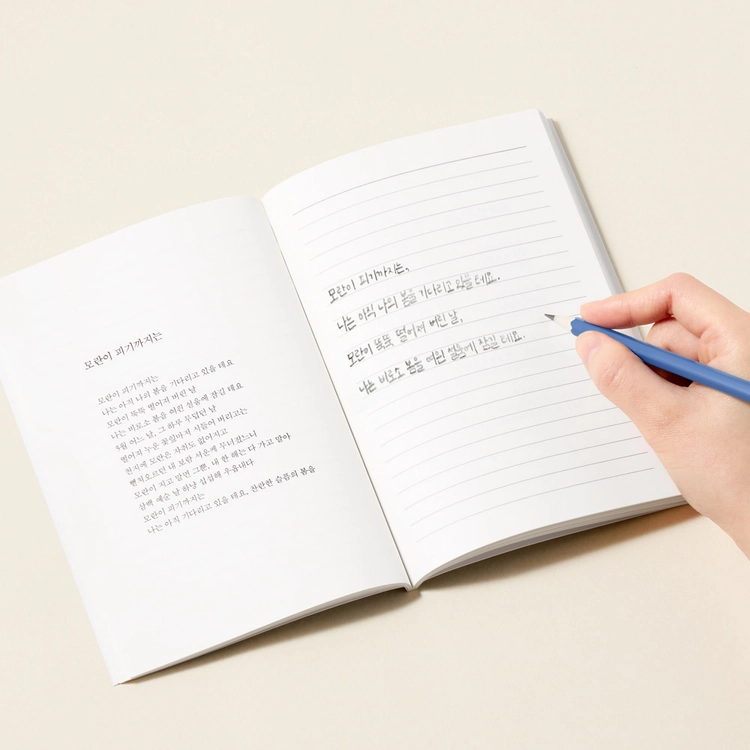 모란이 피기까지는
모란이 피기까지는
나는 아직 나의 봄을 기다리고 있을 테요
모란이 뚝뚝 떨어져 버린 날
나는 비로소 봄을 여읜 설움에 잠길 테요
5월 어느 날, 그 하루 무덥던 날
떨어져 누운 꽃잎마저 시들어 버리고는
천지에 모란은 자취도 없어지고
뻗쳐오르던 내 보람 서운케 무너졌느니
모란이 지고 말면 그뿐, 내 한 해는 다 가고 말아
삼백 예순 날 하냥 섭섭해 우옵내다
모란이 피기까지는
나는 아직 기다리고 있을 테요, 찬란한 슬픔의 봄을
모란이 피기까지는,
나는 아직 나의 봄을 기다리고 있을 테요.
모란이 뚝뚝 떨어져 버린 날,
나는 비로소 봄을 여읜 설움에 잠길 테요.